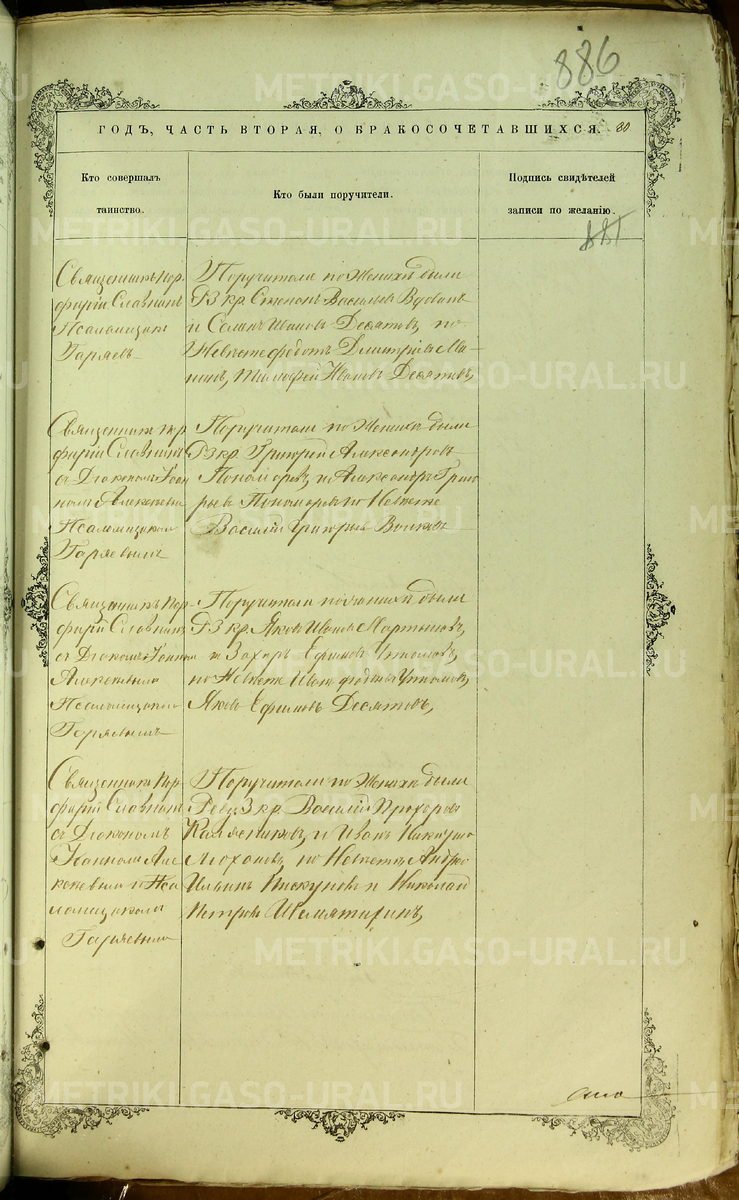 886
ГОДЪ, ЧАСТЬ ВТОРАЯ, О БРАКОСОЧЕТАВШИХСЯ. 80
Кто совершалъ
таинство.
Кто были поручители.
Подпись свидѣтелей
записи по желанію.
Священникъ Пор-
фирій Славнинъ
Псаломщикъ
Гаряевъ
Поручители по Женихѣ были
РЗ кр. Степанъ Васильевъ Вдовинъ
и Иванов Десятовъ, по
Невѣсте Федотъ Дмитріевъ Ма-
нинъ, Тимофей Ивановъ Десятовъ,
Священникъ Пор
фирій Славнинъ
съ Діакономъ Іоан
номъ Алексѣевы
Псаломщикомъ
Гаряевымъ
Поручители по Женихѣ были
РЗ кр. Григорій Александровъ
Пономаревъ, Александръ Григо
рьевъ Пономаревъ по Невѣсте
Василій Григорьевъ
Священникъ Пор-
фирій Славнинъ
съ Діакономъ Іоанномъ
Алексѣевымъ
Псаломщикомъ
Гаряевымъ
Поручители по женихѣ были
РЗ кр. Яковъ Ивановъ Мартыновъ,
и Захаръ Ефимовъ
по Невѣсте Иванъ
Яковъ Ефимовъ Десятовъ,
Священникъ Пор-
фирій Славнинъ
съ Діакономъ
Іоанномъ Але
ксѣевымъ и Пса
ломщикомъ
Гаряевымъ
Поручители по Женихѣ были
Рев. З кр. Василій Прохоровъ
Калясниковъ, и Иванъ
по Невѣсте Андрей
Ильинъ Пискуновъ и Николай
Петровъ Шемятихинъ,
METRIKI.GASO-URAL.RU